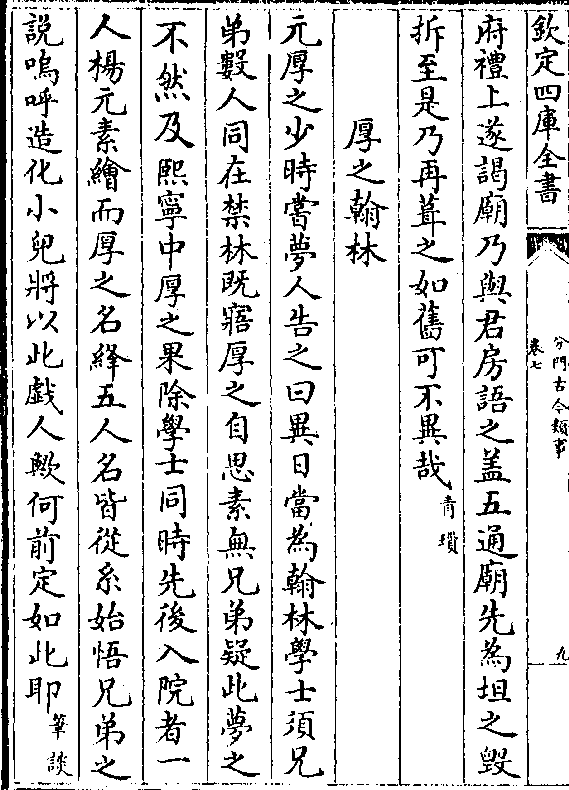 欽定四庫全書
分門古今類事
卷七
九
府禮上遂謁廟乃與君房語之盖五通廟先為坦之毀
拆至是乃再葺之如舊可不異哉青瑣
厚之翰林
元厚之少時嘗夢人告之曰異日當為翰林學士須兄
弟數人同在禁林既寤厚之自思素無兄弟疑此夢之
不然及熙寧中厚之果除學士同時先後入院者一
人楊元素繪而厚之名絳五人名皆從糸始悟兄弟之
說嗚呼造化小兒將以此戲人歟何前定如此耶筆談